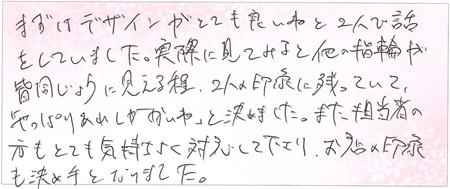 まずはデザインがとても良いねと2人で話
をしていました。実際に見てみると他の指輪が
皆同じように見える程、2人の印象に残っていて、
「やっぱりあれしかないね」と決めました。また担当者の
方もとても気持ちよく対応して下さり、お店の印象
も決め手となりました。